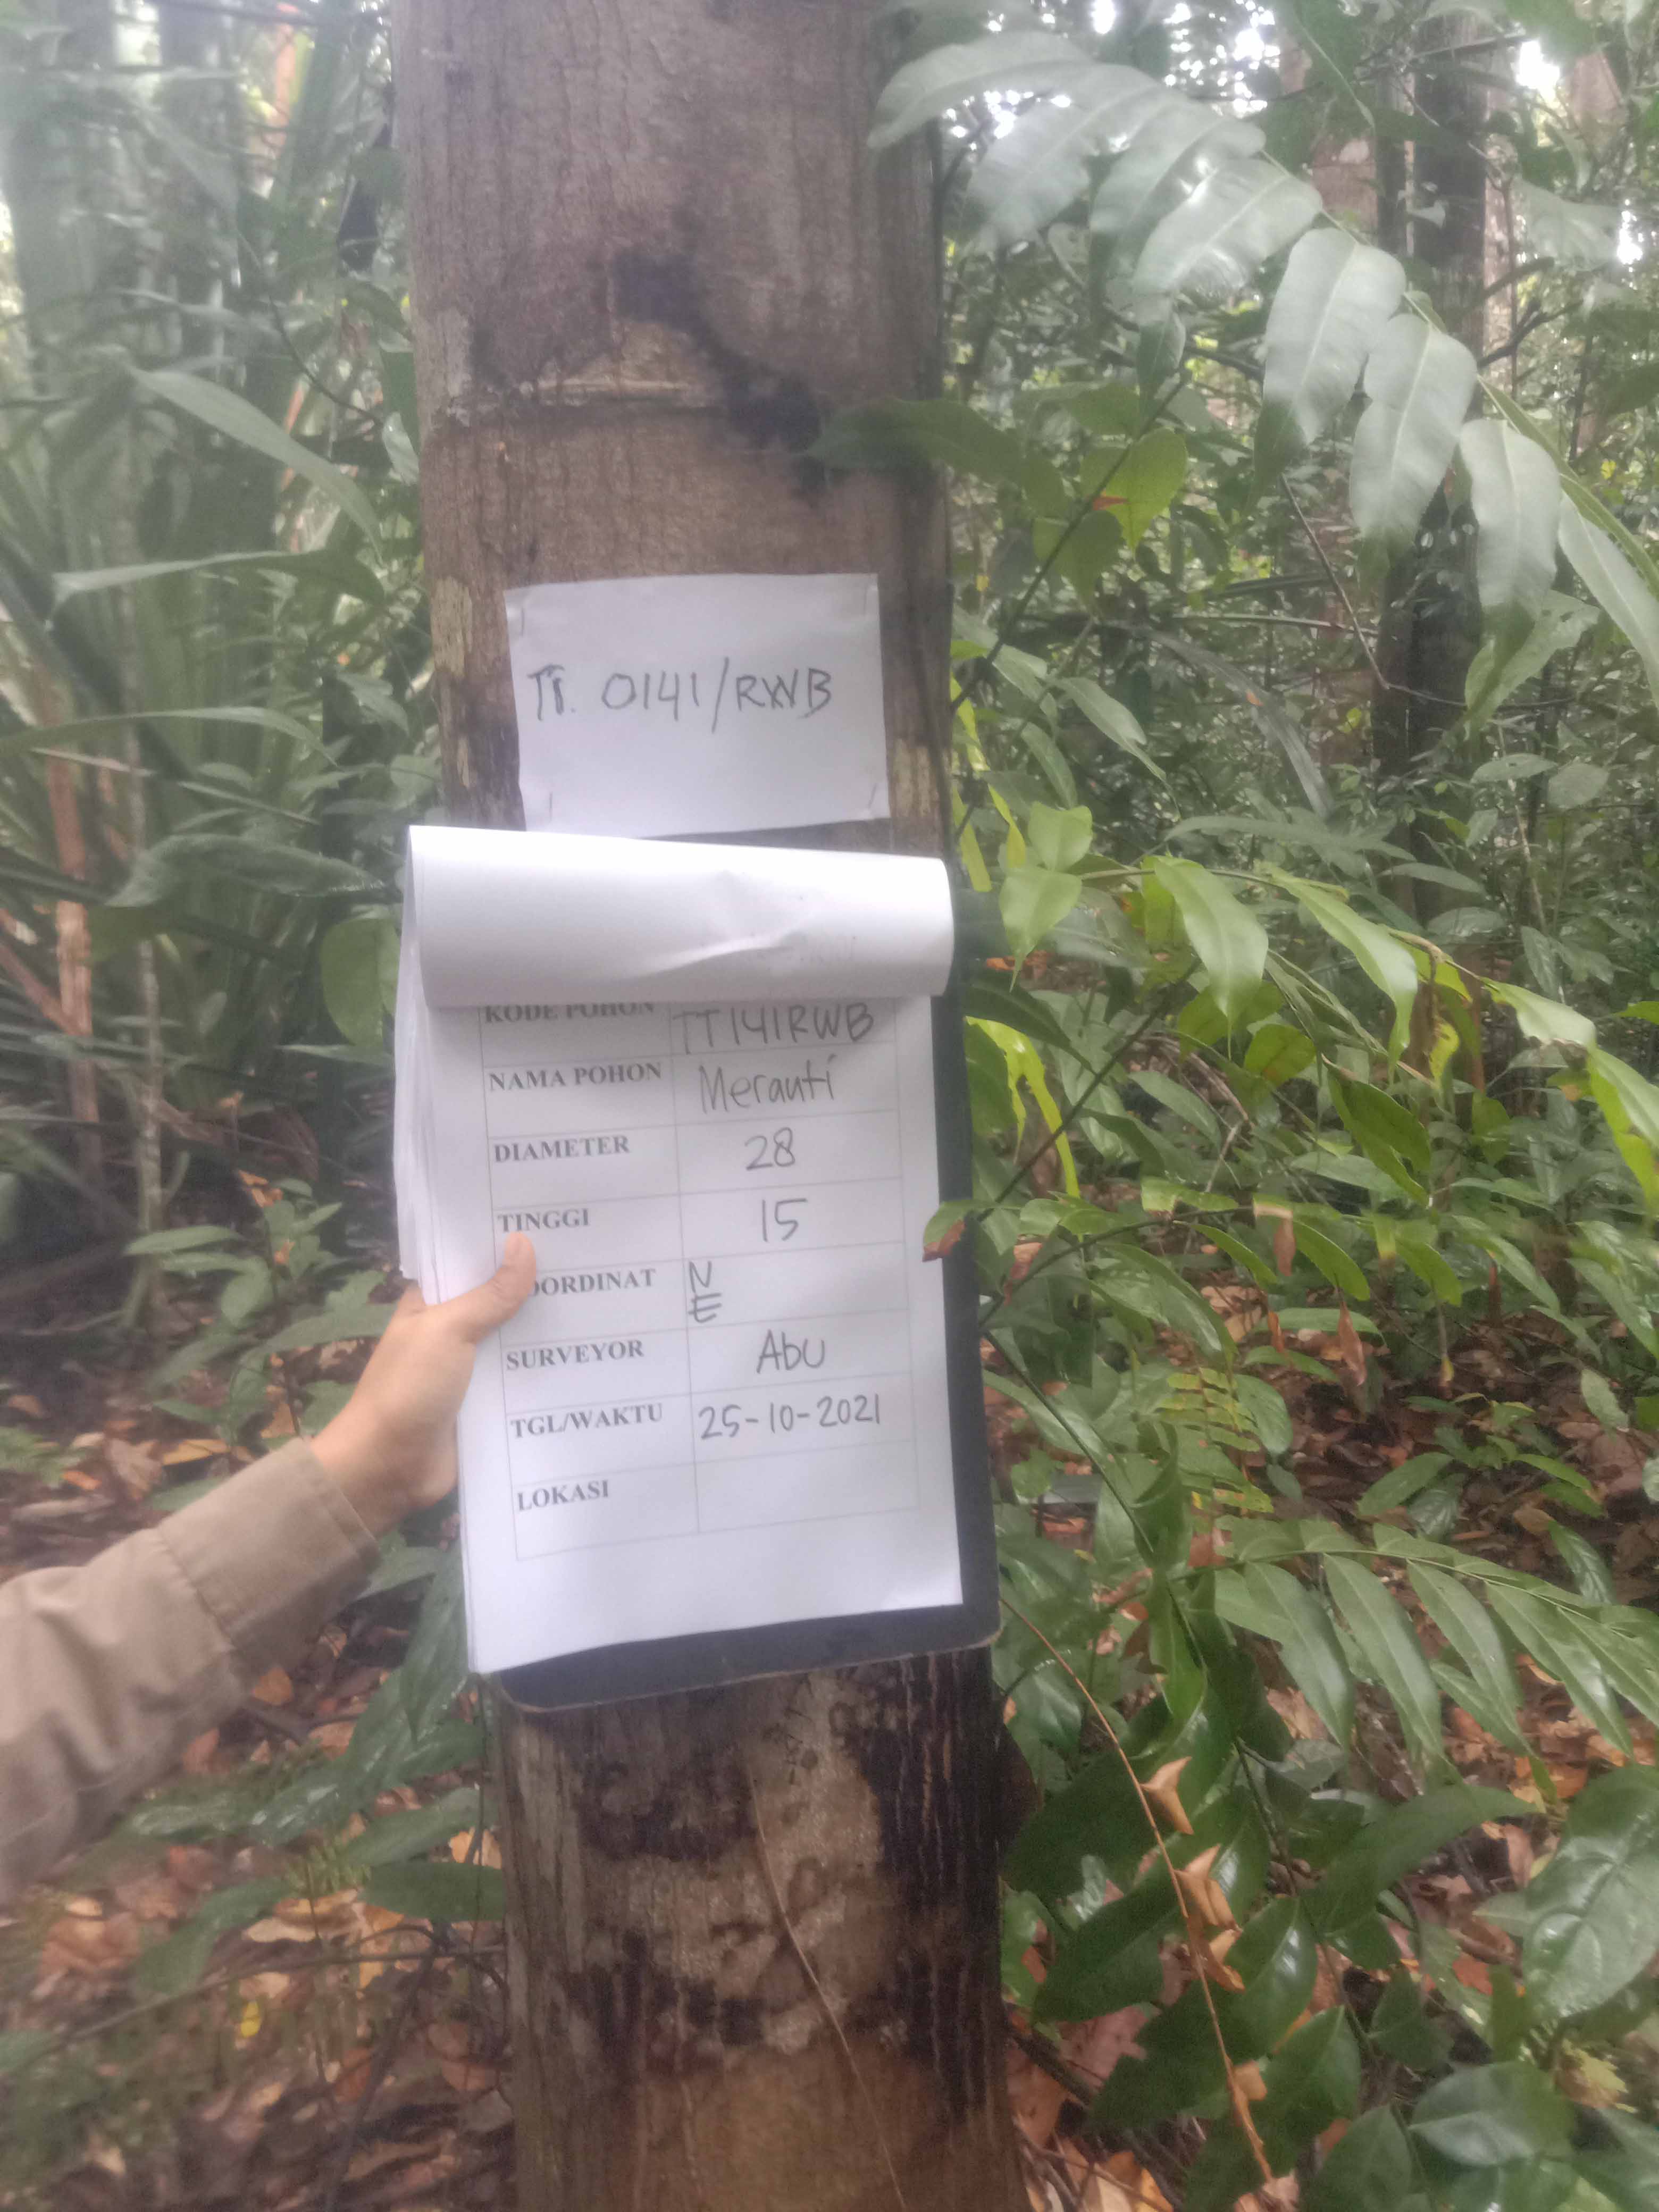 TT. 0141/RWB
KODE POHON TT141RWB
NAMA POHON Merauti
DIAMETER 28
TINGGI 15
OORDINAT N
E
SURVEYOR Abu
TGL/WAKTU 25-10-2021
LOKASI